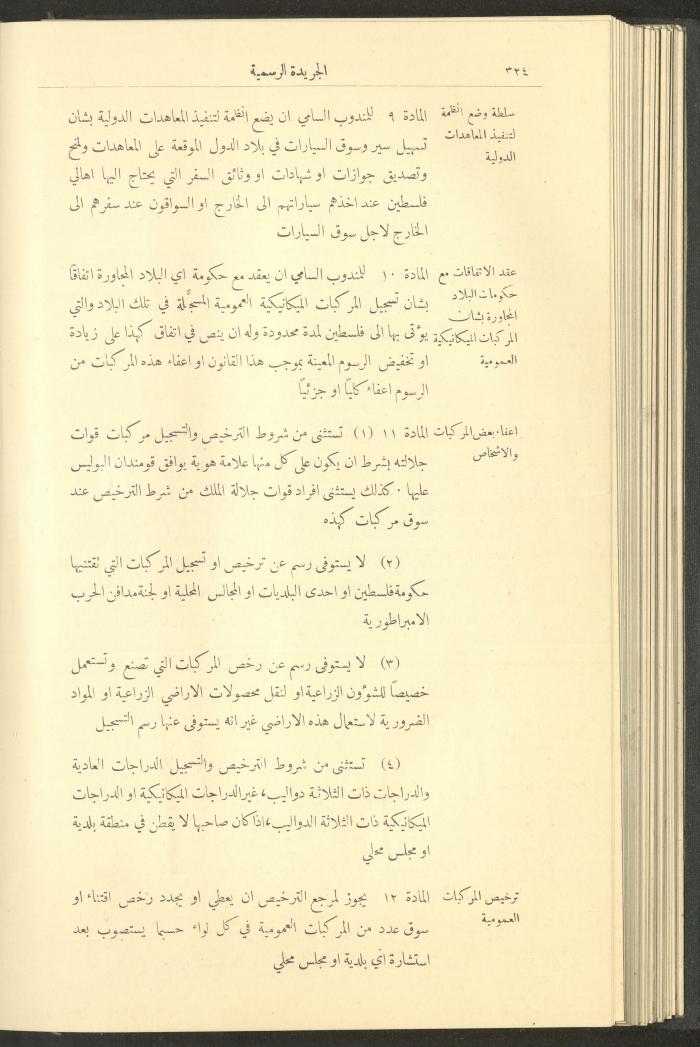 ٣٢٤
الجريدة الرسمية
سلطة وضع انظمة
لتنفيذ المعاهدات
الدولية
المادة ٩ للمندوب السامي ان يضع انظمة لتنفيذ المعاهدات الدولية بشان
تسهيل سير وسوق السيارات في بلاد الدول الموقعة على المعاهدات ولمنح
وتصديق جوازات او شهادات او وثائق السفر التي يحتاج اليها اهالي
فلسطين عند اخذهم سياراتهم الى الخارج او السواقون عند سفرهم الى
الخارج لاجل سوق السيارات
عقد الاتفاقات مع
حكومات البلاد
المجاورة بشان
المركبات الميكانيكية
العمومية
المادة ١٠ للمندوب السامي ان يعقد مع حكومة اي البلاد المجاورة اتفاقًا
بشان تسجيل المركبات الميكانيكية العمومية المسجَّلة في تلك البلاد والتي
يؤتى بها الى فلسطين لمدة محدودة وله ان ينص في اتفاق كهذا على زيادة
او تخفيض الرسوم المعينة بموجب هذا القانون او اعفاء هذه المركبات من
الرسوم اعفاء كليًا او جزئيًا
اعفاء بعض المركبات
والاشخاص
المادة ١١ (١) تستثنى من شروط الترخيص والتسجيل مركبات قوات
جلالته بشرط ان يكون على كل منها علامة هوية يوافق قومندان البوليس
عليها ٠ كذلك يستثنى افراد قوات جلالة الملك من شرط الترخيص عند
سوق مركبات كهذه
(٢) لا يستوفى رسم عن ترخيص او تسجيل المركبات التي تقتنيها
حكومة فلسطين او احدى البلديات او المجالس المحلية او لجنة مدافن الحرب
الامبراطورية
(٣) لا يستوفى رسم عن رخص المركبات التي تصنع وتستعمل
خصيصًا للشؤون الزراعية او لنقل محصولات الاراضي الزراعية او المواد
الضرورية لاستعمال هذه الاراضي غير انه يستوفى عنها رسم التسجيل
(٤) تستثنى من شروط الترخيص والتسجيل الدراجات العادية
والدراجات ذات الثلاثة دواليب، غير الدراجات الميكانيكية او الدراجات
الميكانيكية ذات الثلاثة الدواليب، اذا كان صاحبها لا يقطن في منطقة بلدية
او مجلس محلي
ترخيص المركبات
العمومية
المادة ١٢ يجوز لمرجع الترخيص ان يعطي او يجدد رخص اقتناء او
سوق عدد من المركبات العمومية في كل لواء حسبما يستصوب بعد
استشارة اي بلدية او مجلس محلي